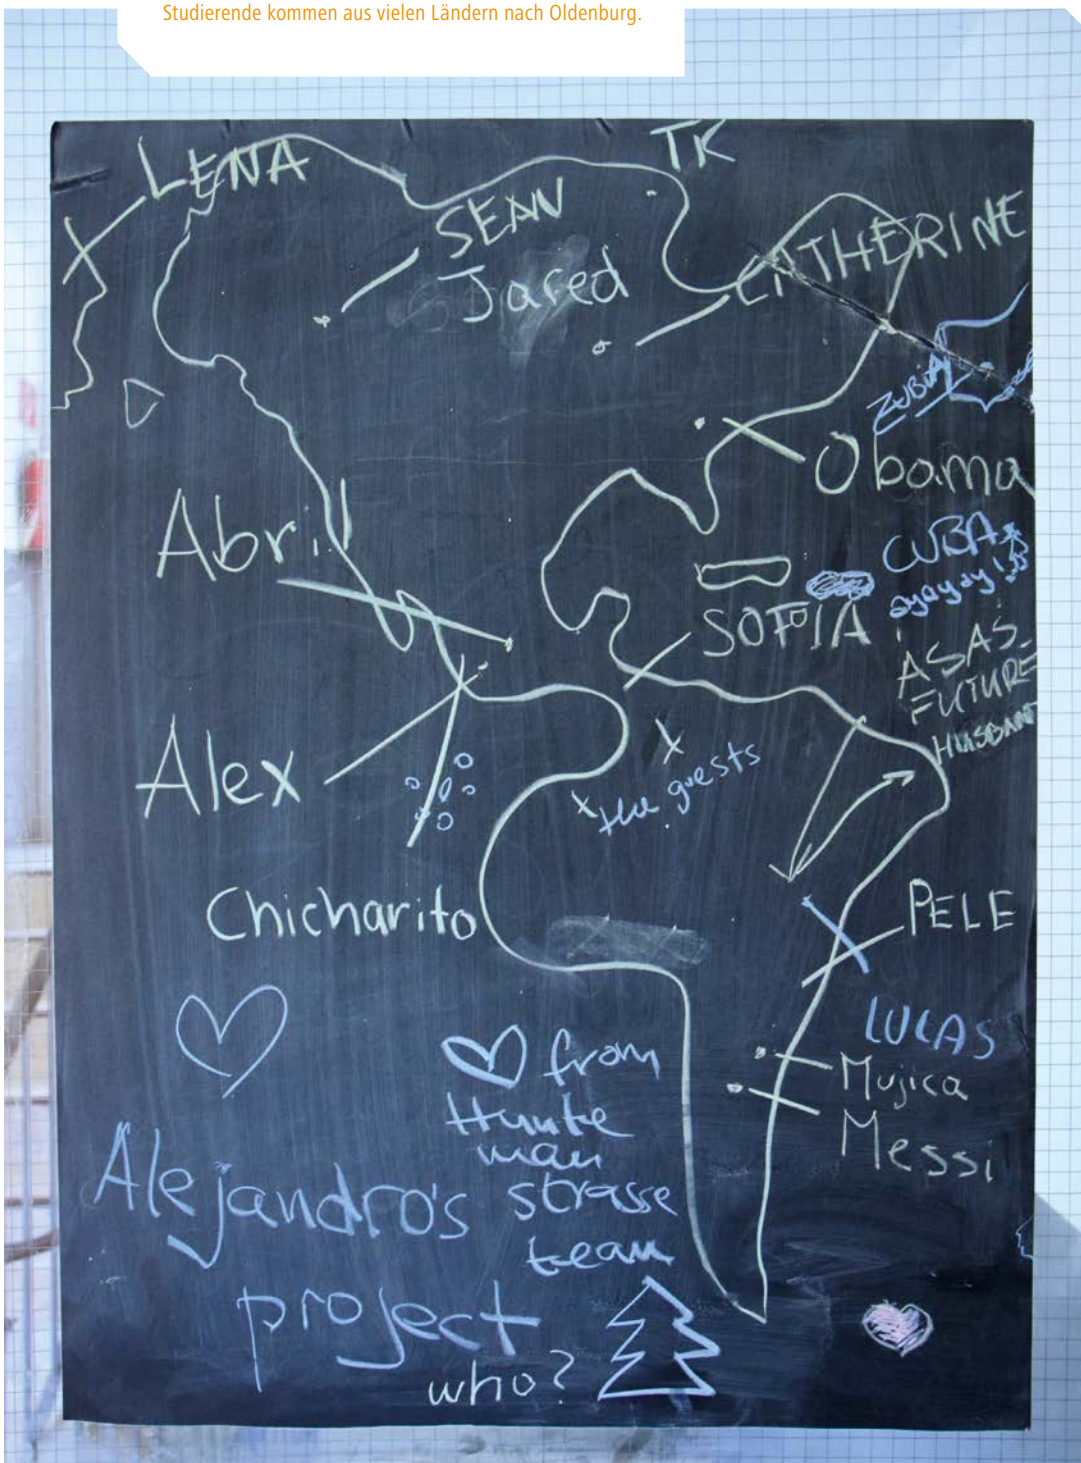 Studierende kommen aus vielen Ländern nach Oldenburg.
LENA
TK
SEAN
Jared
CATHERINE
ZUBIA
Obama
Abril
CUBA
ayayay!
SOFIA
ASAS
FUTURE
HUSBANT
Alex
the guests
Chicharito
PELE
LUCAS
from
Hunte
man
strasse
team
Mujica
Messi
Alejandro's
project
who?